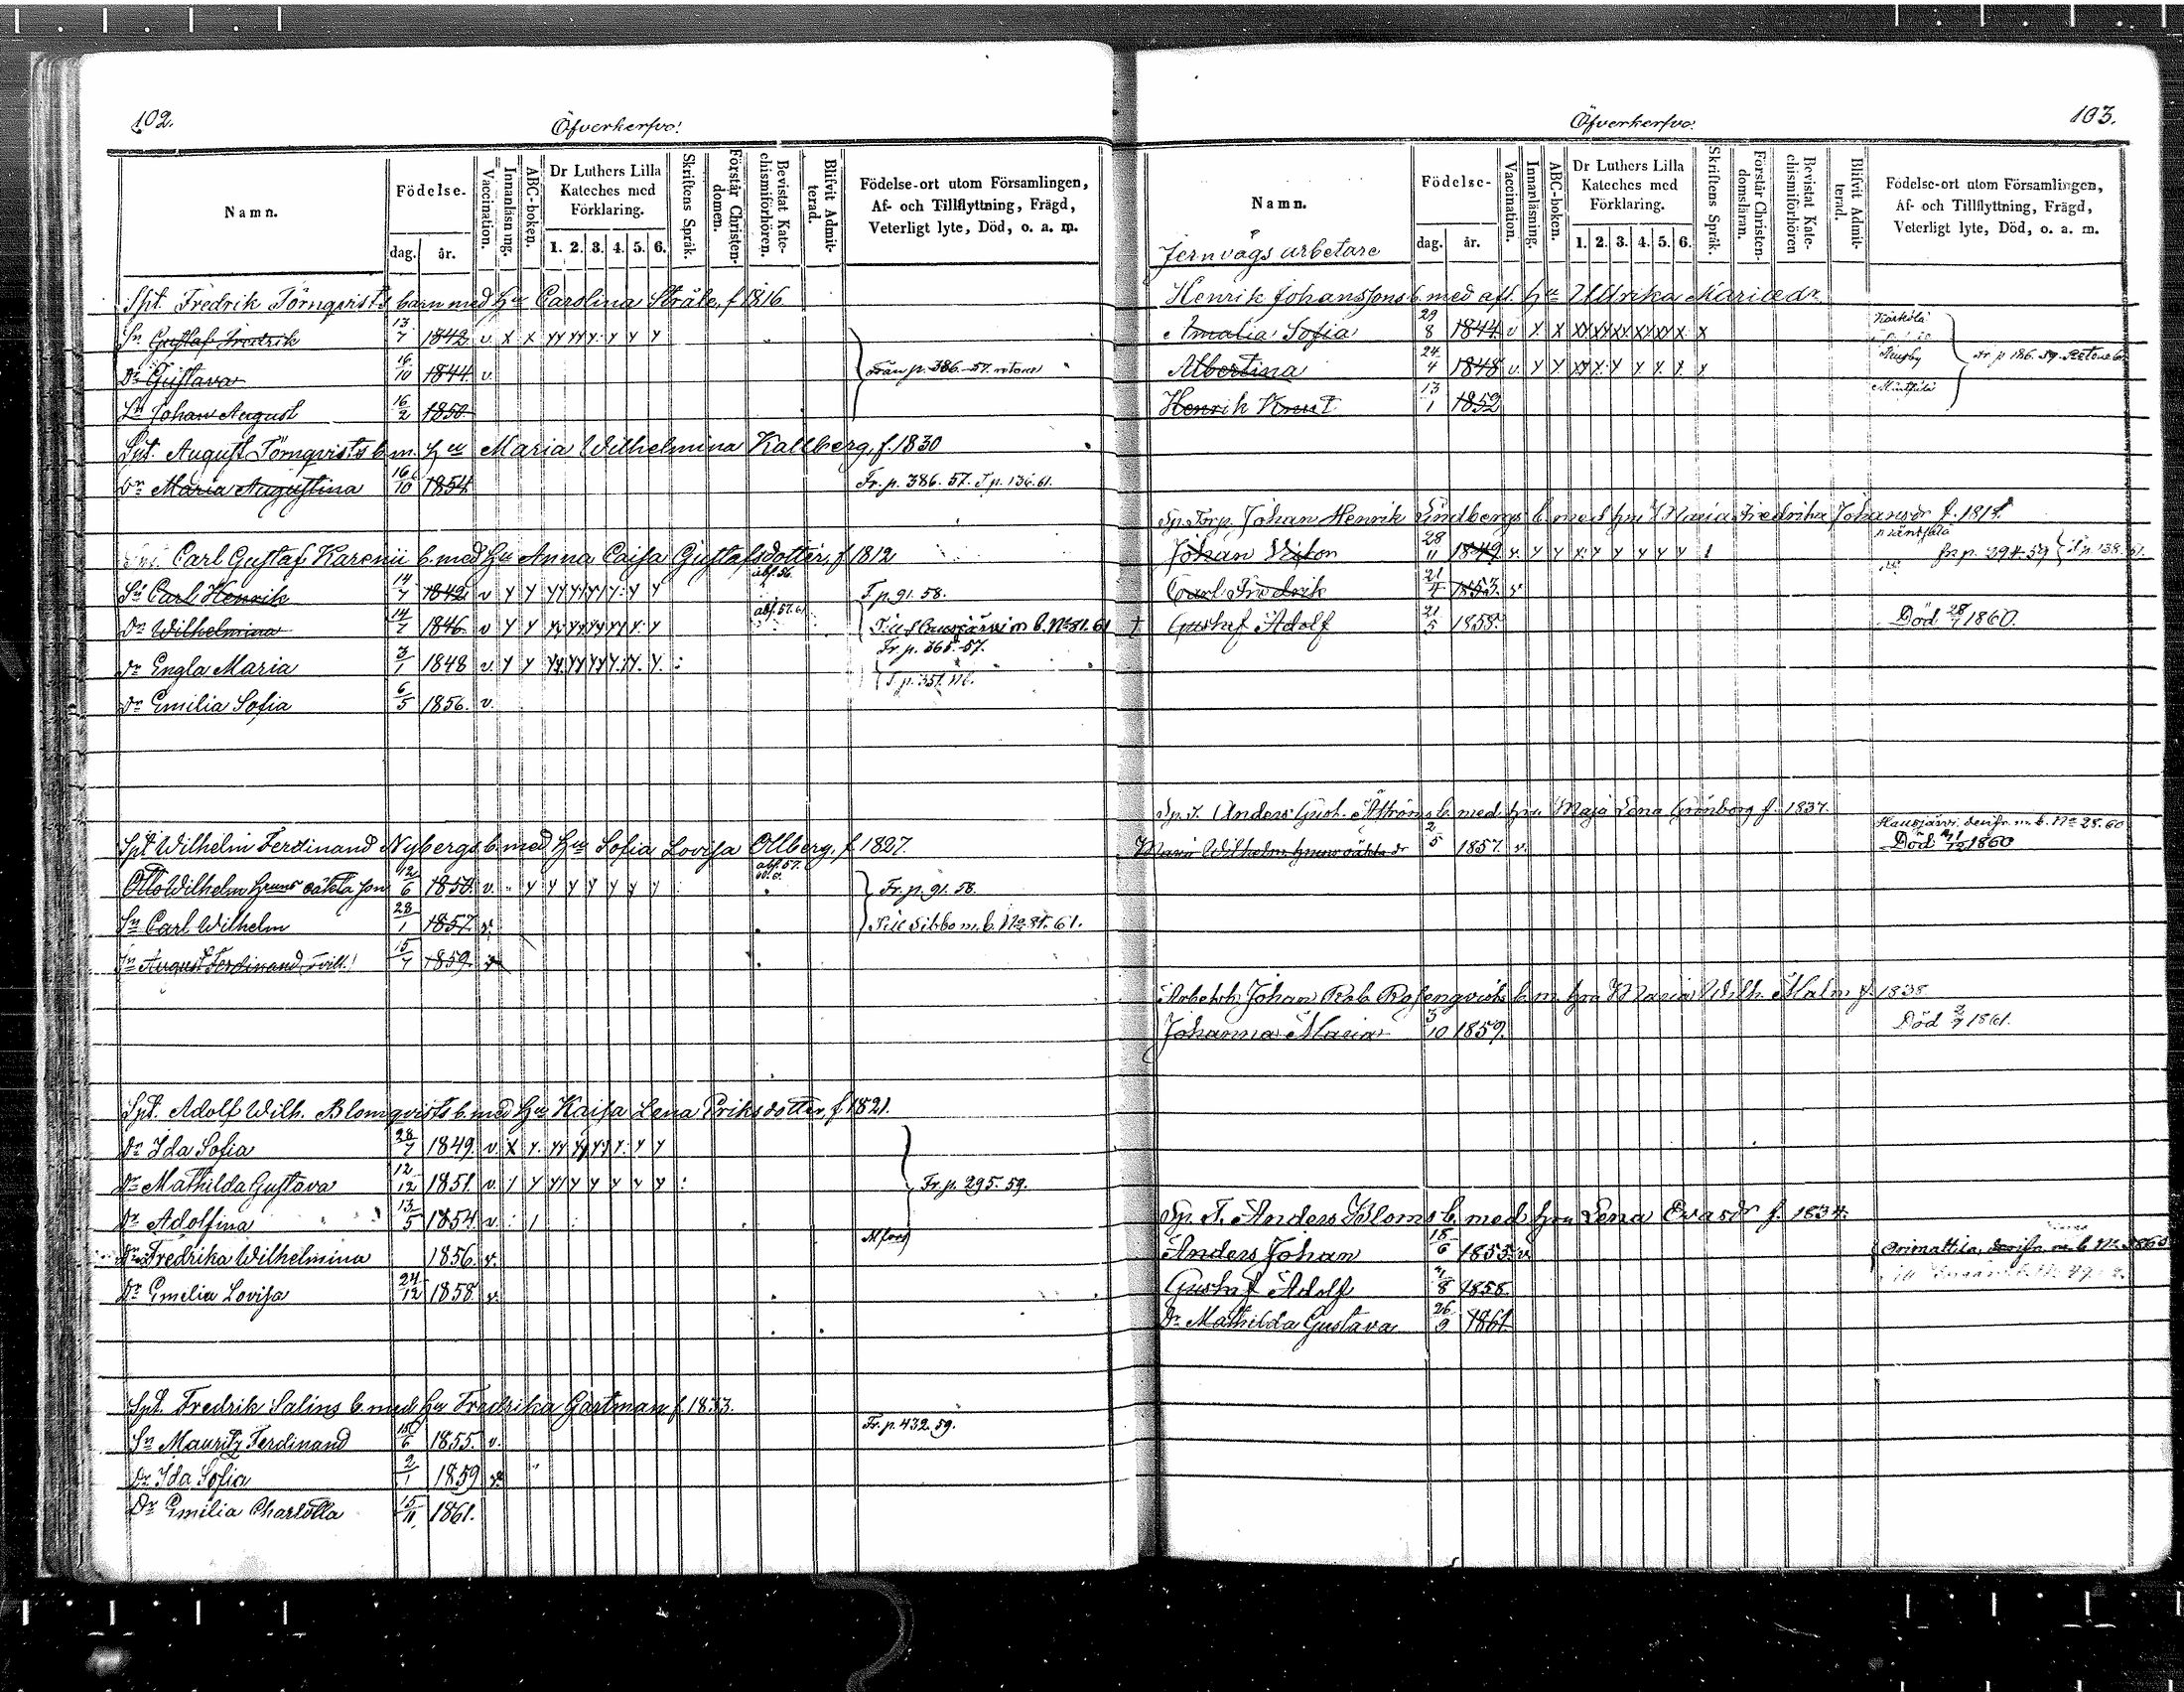 102.
Öfverkerfvo.
Namn.
Födelse.
dag.
år.
Vaccination.
Innanläsning.
ABC-boken.
Dr Luthers Lilla Kateches med Förklaring.
1. 2. 3. 4. 5. 6.
Skriftens Språk.
Förstår Christendomen.
Bevistat Katechismiförhören.
Blifvit Admitterad.
Födelse-ort utom Församlingen, Af- och Tillflyttning, Frägd, Veterligt lyte, Död, o. a. m.
Spt. Fredrik Törnqvists barn med Hu Carolina Stråle, f 1816
Sn Gustaf Fredrik 13/7 1842 v x x
Dr Gustava 16/10 1844 v. Från p. 386.-57.
Sn Johan August 16/2 1850
Spt. August Törnqvists b. m. Hu Maria Wilhelmina Kallberg, f. 1830
Dr Maria Augustina 16/10 1854 Fr. p. 386. 57. T p. 136. 61.
Carl Gustaf Karenii b. med Hu Anna Caisa Gustafsdotter, f 1812
Sn Carl Henrik 14/7 1842 v y y T. p 91. 58.
Dr Wilhelmina 14/7 1846 v y y m. b. No 81. 61
Fr. p. 365.-57.
Dr Engla Maria 3/1 1848 v. y y
T. p. 351.
Dr Emilia Sofia 6/5 1856. v.
Spt Wilhelm Ferdinand Nybergs b. med Hu Sofia Lovisa Ollberg, f 1827.
Otto Wilhelm Hruns oäkta son 12/6 1850. v. Fr. p. 91. 58.
Sn Carl Wilhelm 28/1 1857 v. Till Sibbo m. b. No 81. 61.
Sn August Ferdinand, tvill. 15/7 1859 v
Spt. Adolf Wilh. Blomqvists b. med Hu Kaisa Lena Eriksdotter, f 1821.
Dr Ida Sofia 28/7 1849. v. x y.
Dr Mathilda Gustava 12/12 1851. v. Fr. p. 295. 59.
Dr Adolfina 13/5 1854 v.
Fredrika Wilhelmina 1856. v.
Dr Emelia Lovisa 24/12 1858 v.
Spt. Fredrik Salins b. med Hu Fredrika Gartman f. 1833.
Sn Mauritz Ferdinand 15/6 1855. v. Fr. p. 432. 59.
Dr Ida Sofia 2/1 1859 v.
Dr Emilia Charlotta 15/11 1861.
103.
Öfverkerfvo.
Namn.
Födelse-
dag.
år.
Vaccination.
Innanläsning.
ABC-boken.
Dr Luthers Lilla Kateches med Förklaring.
1. 2. 3. 4. 5. 6.
Skriftens Språk.
Förstår Christendomsläran.
Bevistat Katechismiförhören
Blifvit Admitterad.
Födelse-ort utom Församlingen, Af- och Tillflyttning, Frägd, Veterligt lyte, Död, o. a. m.
Jernvägs arbetare
Henrik Johanssons b. med afl. Hu Ulrika Mariædr.
Amalia Sofia 29/8 1844. v x x Kärkölä
Albertina 24/4 1848 v. y y fr p 186. 59
Henrik Knut 13/1 1852 Mäntsälä
Sp. Torp. Johan Henrik Lindbergs b. med hru Maria Fredrika Johansdr f. 1819.
Mäntsälä
Johan Viktor 28/11 1849 v. fr p. 394-59 T. p. 138. 61.
Carl Fredrik 21/4 1853. v
† Gustaf Adolf 21/5 1858. Död 28/7 1860.
Sp. T. Anders Gust. Åströms b. med hru Maja Lena Grönborg f. 1837.
Hausjärvi, derifr. m. b. No 28. 60
Maria Wilhelm. hruns oäkta dr 2/5 1857. v. Död 1860
Arbetk. Johan Rob. Rosenqvists b. m. hru Maria Wilh. Malm f. 1838
Johanna Maria 3/10 1859. Död 1861.
Sp. T. Anders Bloms b. med hru Lena Evasdr f. 1834.
Anders Johan 18/6 1855. v. Orimattila, derifr. m. b. No
Gustaf Adolf 8 1858.
Dr Mathilda Gustava 26/9 1861